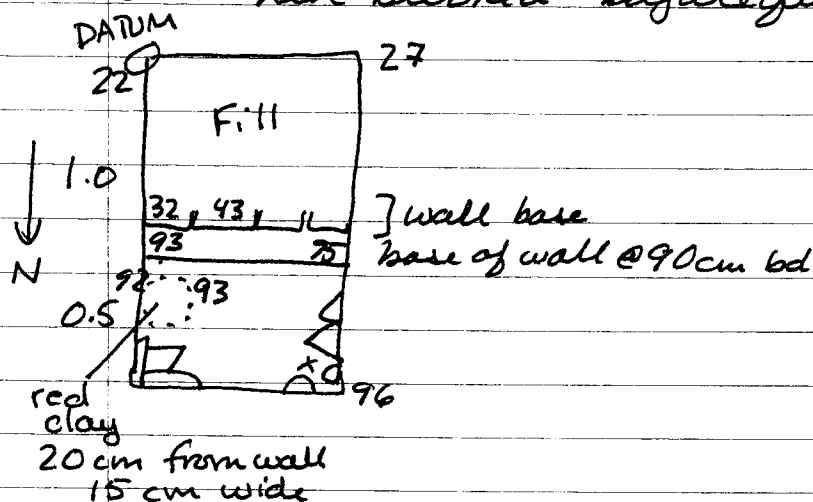 DATUM
22
27
Fill
1.0
32 43
] wall base
93
75
base of wall @ 90cm bd
N
92
93
0.5
x
96
red
clay
20 cm from wall
15 cm wide